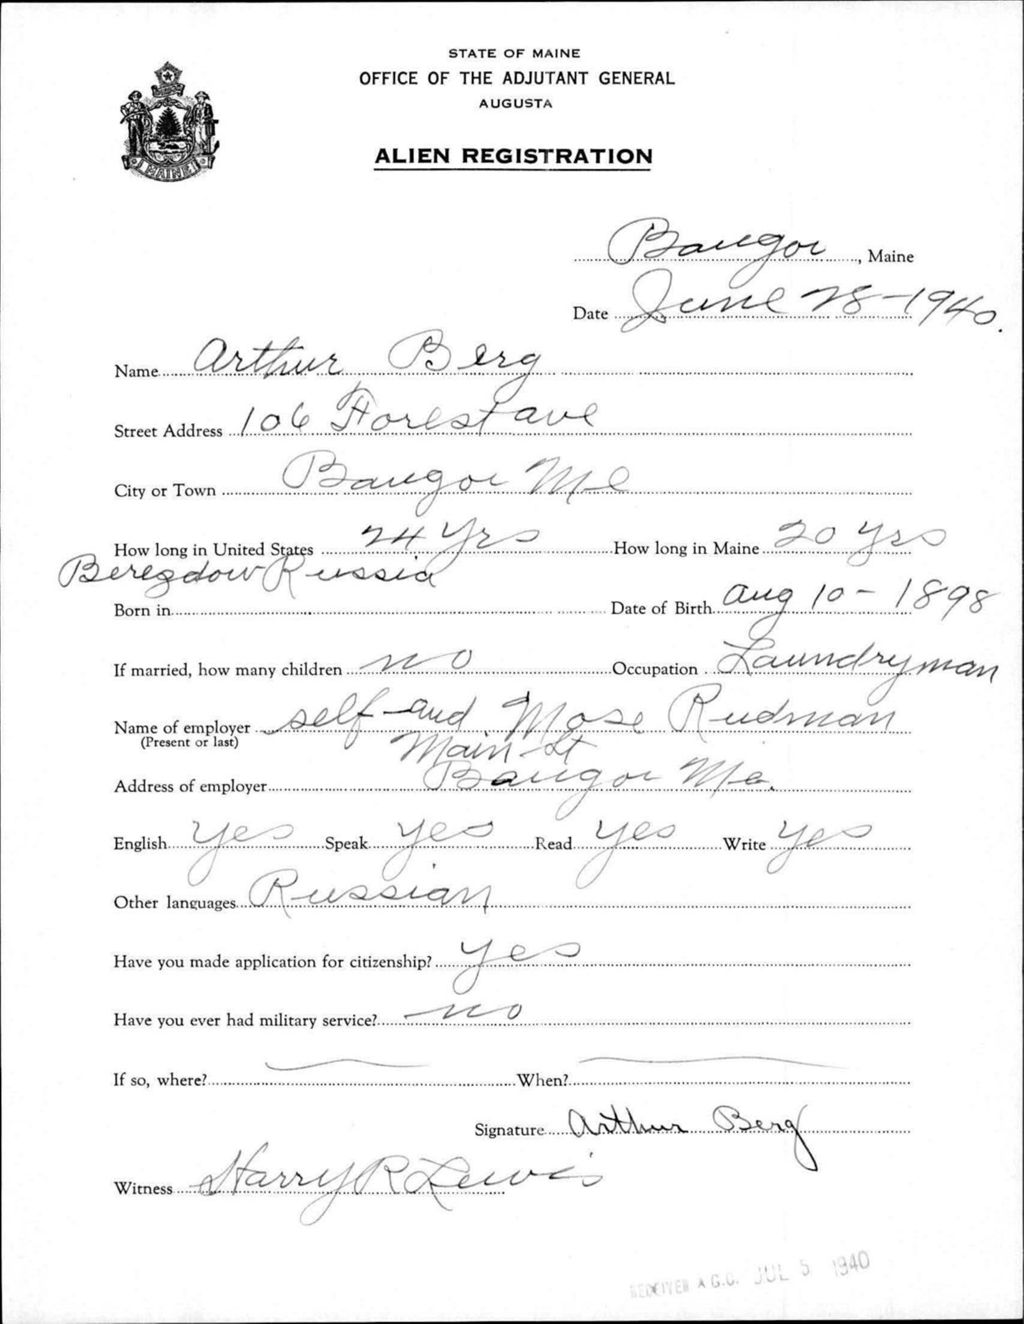 STATE OF MAINE
OFFICE OF THE ADJUTANT GENERAL
AUGUSTA
ALIEN REGISTRATION
MAINE
Bangor, Maine
Date June 28-1940.
Name Arthur Berg
Street Address 106 Forest ave
City or Town Bangor Me
How long in United States 24 Yrs How long in Maine 20 Yrs
Beregdow Russia
Born in Date of Birth Aug 10 - 1898
If married, how many children no Occupation Laundryman
Name of employer self and Mose Rudman
(Present or last)
Main St
Address of employer Bangor Me.
English Yes Speak Yes Read Yes Write Yes
Other languages Russian
Have you made application for citizenship? Yes
Have you ever had military service? no
If so, where? When?
Signature Arthur Berg
Witness Harry R Lewis
RECEIVED A.G.O. JUL 5 1940